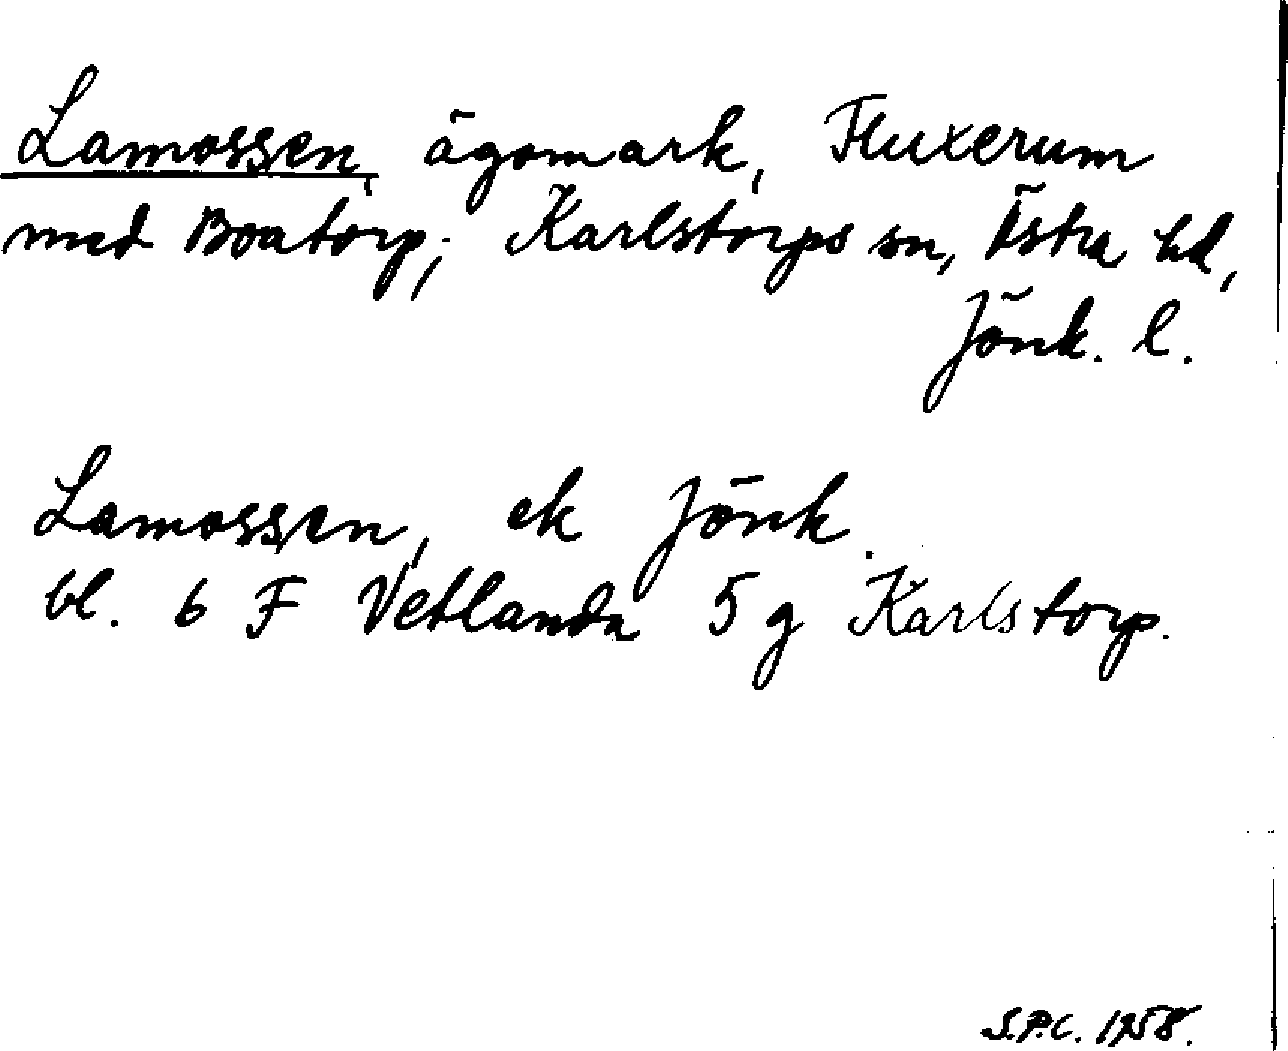 Lamossen, ägomark, Fluxerum
med Boatorp; Karlstorps sn, Östra hd,
Jönk. l.
Lamossen, ek Jönk.
bl. 6 F Vetlanda 5 g Karlstorp.
S.P.C. 1958.